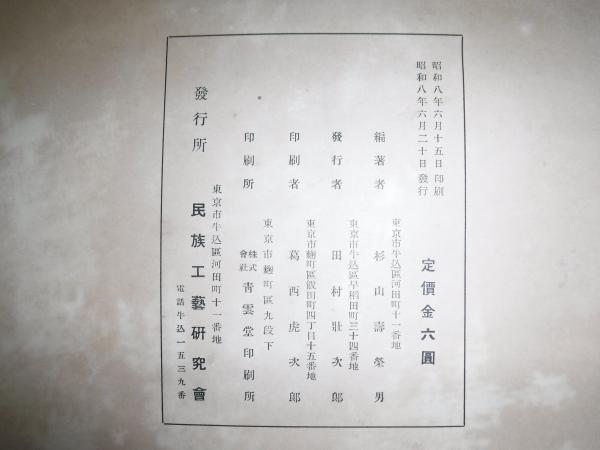 昭和八年六月十五日印刷
昭和八年六月二十日發行
定價金六圓
東京市牛込區河田町十一番地
編著者 杉山壽榮男
東京市牛込區早稻田町三十四番地
發行者 田村壯次郎
東京市麴町區飯田町四丁目十五番地
印刷者 葛西虎次郎
東京市麴町區九段下
印刷所 株式會社 靑雲堂印刷所
東京市牛込區河田町十一番地
發行所 民族工藝硏究會
電話牛込一五三九番